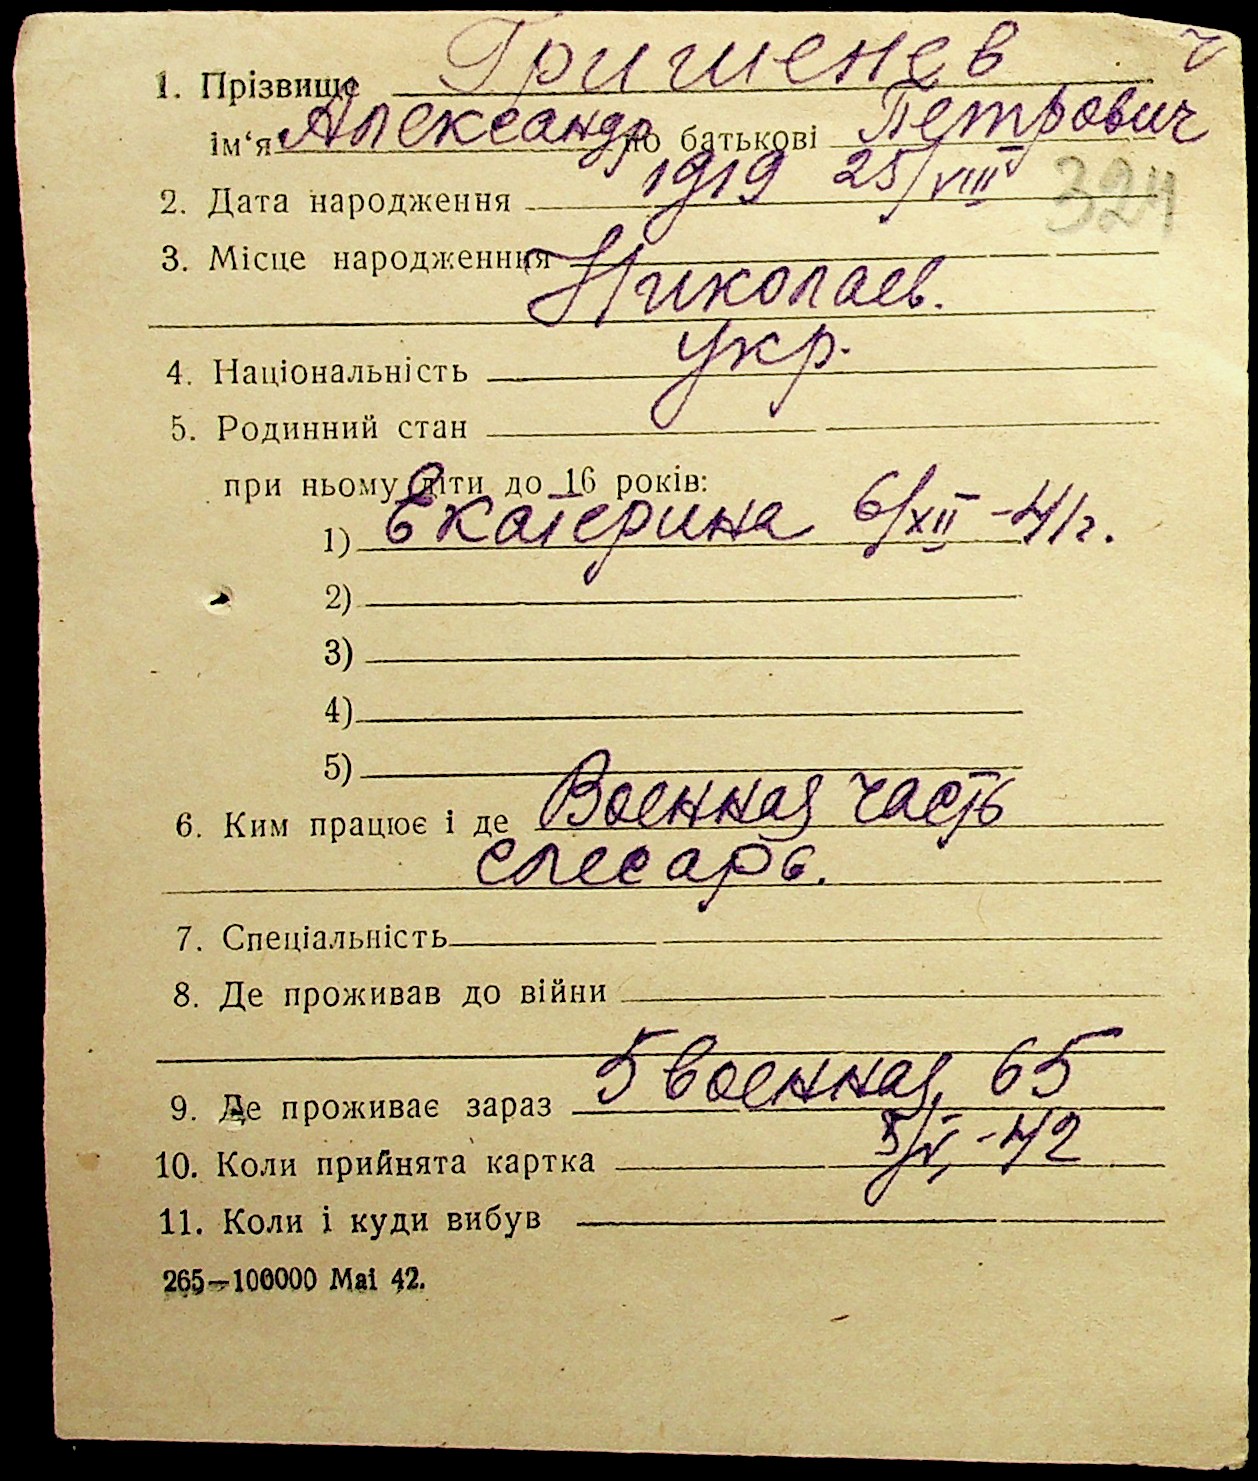 1. Прізвище Гришенев
ім‘я Александр по батькові Петрович
2. Дата народження 1919 25/VIII
324
3. Місце народженння Николаев.
4. Національність укр.
5. Родинний стан
при ньому діти до 16 років:
1) Екатерина 6/XII -41г.
2)
3)
4)
5)
6. Ким працює і де Военная часть
слесарь.
7. Спеціальність
8. Де проживав до війни
9. Де проживає зараз 5 военная, 65
10. Коли прийнята картка 5/V, -42
11. Коли і куди вибув
265—100000 Mai 42.